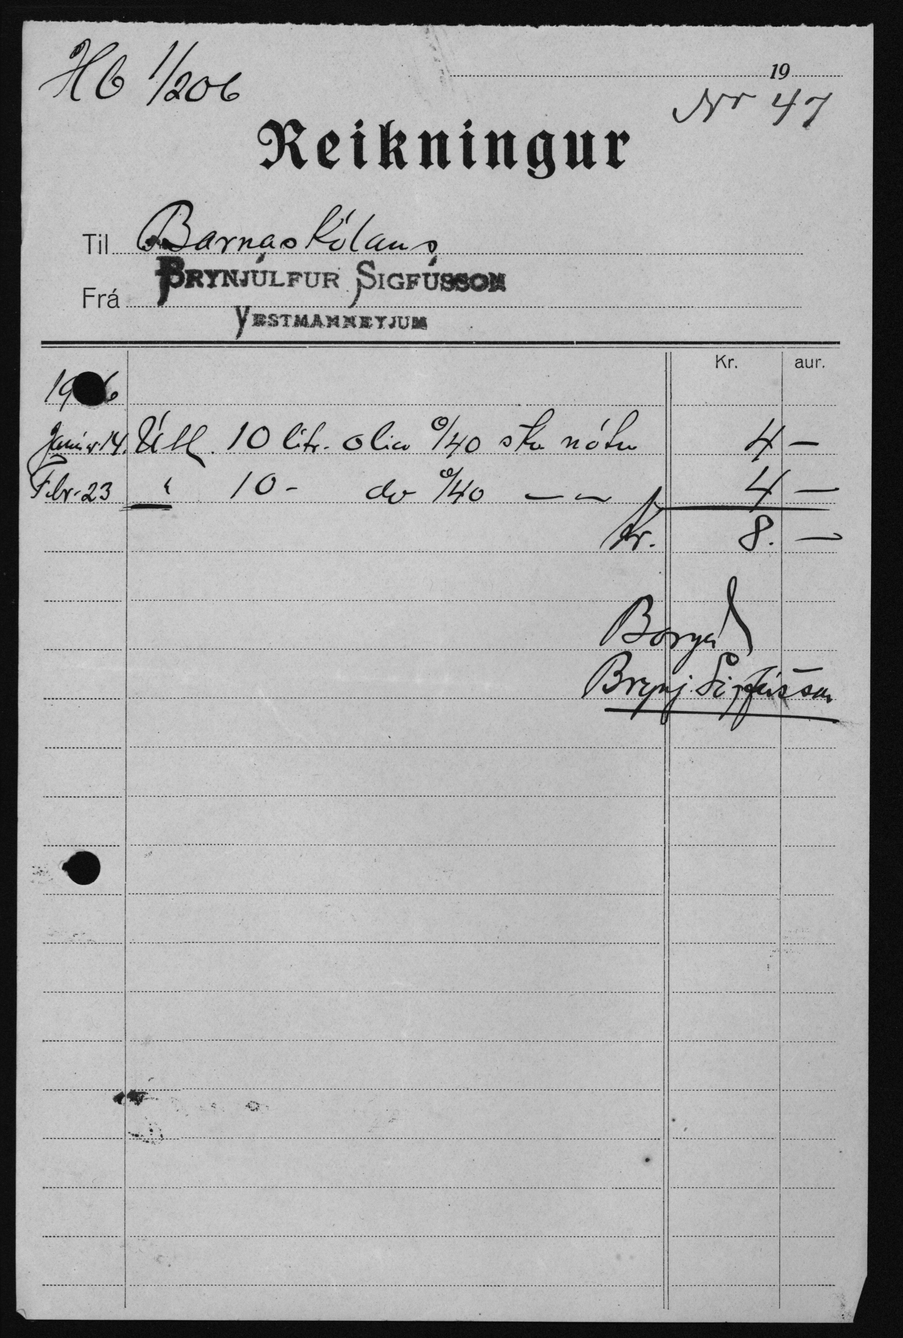 Hb 1/206
19
Nr 47
Reikningur
Til Barnaskólans
Frá BRYNJÚLFUR SIGFÚSSON
VESTMANNEYJUM
Kr. aur.
Janúar 14. Útt. 10 litr. olia º/40 sk. nótu 4 —
Febr. 23 " 10 - do º/40 — — 4 —
Kr. 8. —
Borgað
Brynj. Sigfússon